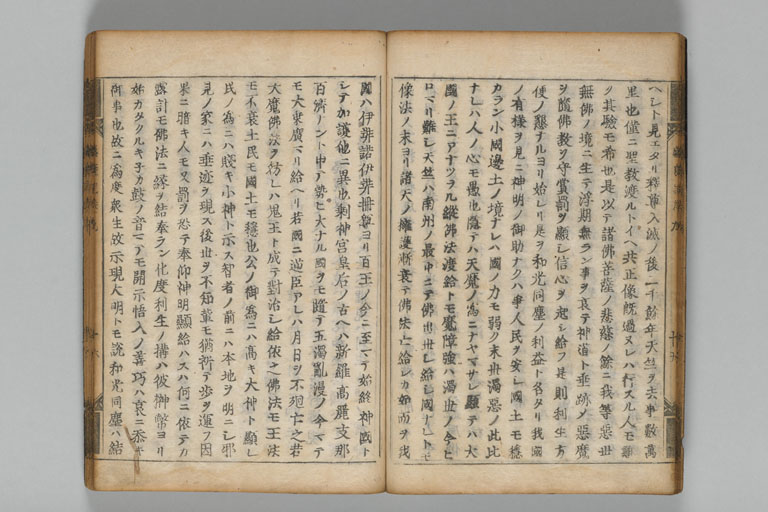 ヘシト見エタリ釋尊入滅ノ後一千餘年天竺ヲ去事數萬
里也僅ニ聖教渡ルトイヘ共正像既過ヌレハ行スル人モ難
ク其驗モ希也是以テ諸佛菩薩ノ慈悲ノ餘ニ我等惡世
無佛ノ境ニ生テ浮期無ラン事ヲ哀テ神道ト垂跡シ惡魔
ヲ隨佛教ヲ守賞罰ヲ顕シ信心ヲ起シ給フ是則利生方
便ノ懇ナルヨリ始レリ是ヲ和光同塵ノ利益ト名タリ我國
ノ有様ヲ見ニ神明ノ御助ナクハ事人民ヲ安シ國土モ穏
カラン小國邊土ノ境ナレハ國ノ力モ弱ク末世濁惡ノ此比
ナレハ人ノ心モ愚也隠テハ天魔ノ為ニナヤマサレ顕テハ大
國ノ王ニアナツラル縦佛法渡給トモ魔障強ハ濁世ノ今ヒ
ロマリ難シ天竺ハ南州ノ最中ニテ佛出世シ給シ國ナレトモ
像法ノ末ヨリ諸天ノ擁護漸衰テ佛法亡給シカ如而ヲ我
國ハ伊弉諾伊弉冊尊ヨリ百王ノ今ニ至マテ始終神國ト
シテ加護他ニ異也剰神宮皇后ノ古ヘハ新羅高麗支那
百濟ノント申ア勢ヒ大ナル國ヲモ隨テ五濁亂漫ノ今マテ
モ大乗廣マリ給ヘリ若國ニ逆臣アレハ月日ヲ不廻亡之若
大魔佛法ヲ妨レハ鬼王ト成テ對治シ給依之佛法モ王法
モ不衰土民モ國土モ穏也公ノ御為ニハ高キ大神ト顕シ
民ノ為ニハ賎キ小神ト示ス智者ノ前ニハ本地ヲ明ニシ邪
見ノ家ニハ垂迹ヲ現ス後世ヲ不知輩モ猶祈テ歩ヲ運フ因
果ニ暗キ人モ又罰ヲ恐テ奉仰神明顕給ハスハ何ニ依テカ
露計モ佛法ニ縁ヲ結奉ラン化度利生ノ構ハ彼神幣ヨリ
始カタクルキ子カ鼓ノ音マテモ開示悟入ノ善巧ハ哀ニ忝キ
御事也故ニ為度衆生故示現大明トモ説和光同塵ハ結